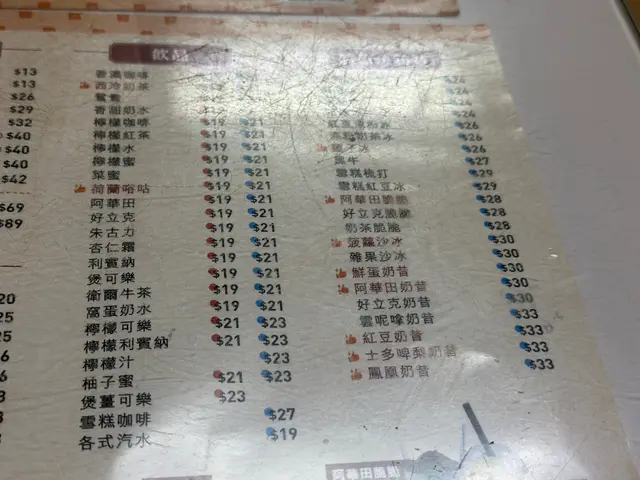 $13
$13
$26
$29
$32
$40
$40
$40
$42
$69
$89
20
25
25
飲品
香濃咖啡
西冷奶茶
鴛鴦
香甜奶水
檸檬咖啡 $19 $21
檸檬紅茶 $19 $21
檸檬水 $19 $21
檸檬蜜 $19 $21
菜蜜 $19 $21
荷蘭哈咕 $19 $21
阿華田 $19 $21
好立克 $19 $21
朱古力 $19 $21
杏仁霜 $19 $21
利賓納 $19 $21
煲可樂 $19 $21
衛爾牛茶 $19 $21
窩蛋奶水 $19 $21
檸檬可樂 $21 $23
檸檬利賓納 $21 $23
檸檬汁 $23
柚子蜜 $21 $23
煲薑可樂 $23
雪糕咖啡 $27
各式汽水 $19
$24
$24
$24
$26
$26
$26
黑牛 $27
雪糕梳打 $29
雪糕紅豆冰 $29
阿華田脆脆 $28
好立克脆脆 $28
奶茶脆脆 $28
菠蘿沙冰 $30
雜果沙冰 $30
鮮蛋奶昔 $30
阿華田奶昔 $30
好立克奶昔 $30
雲呢拿奶昔 $33
紅豆奶昔 $33
士多啤梨奶昔 $33
鳳凰奶昔 $33
阿華田脆脆